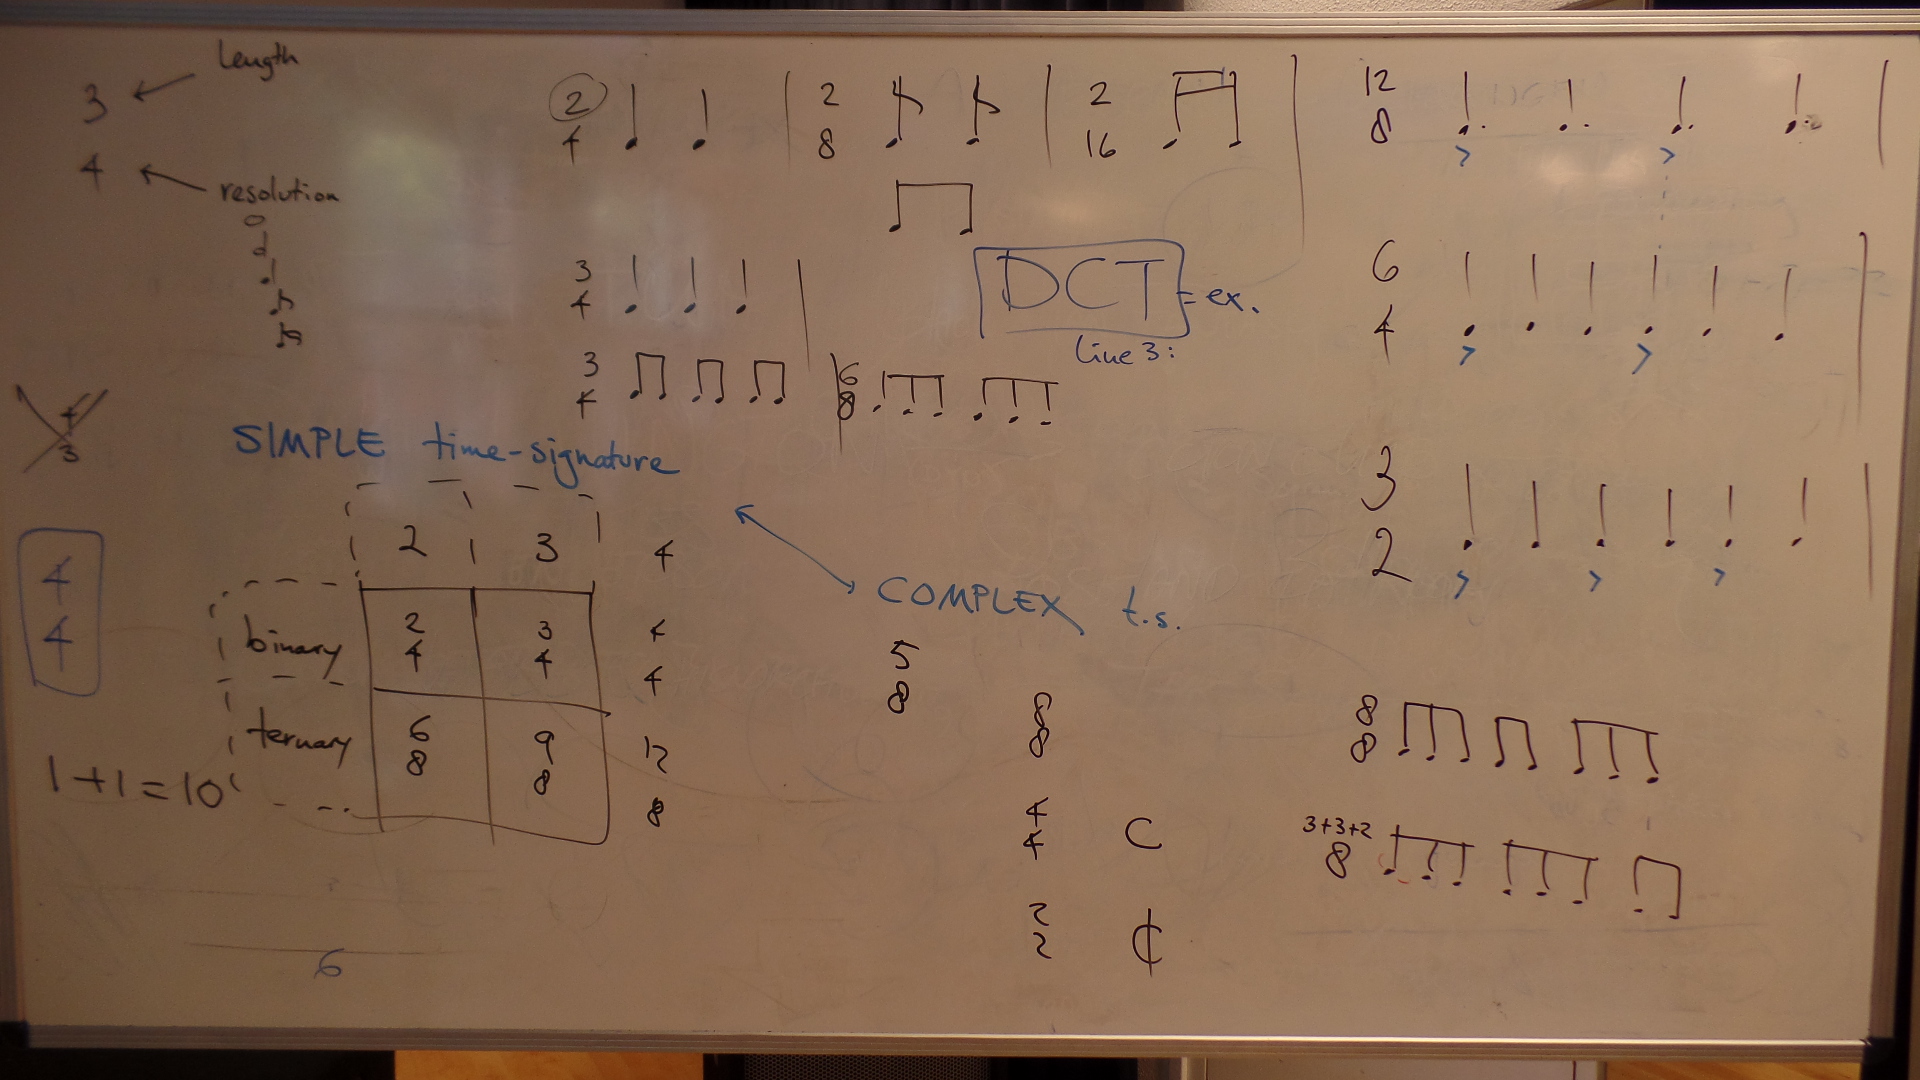 length
3
4
resolution
2
4
2
8
2
16
12
8
>
>
3
4
DCT = ex.
line 3:
6
4
>
>
3
4
6
8
4
3
SIMPLE time-signature
3
2
>
>
>
4
4
2
3
4
binary
2
4
3
4
4
4
ternary
6
8
9
8
12
8
1+1=10
COMPLEX t.s.
5
8
8
8
4
4
C
2
2
¢
8
8
3+3+2
8
6